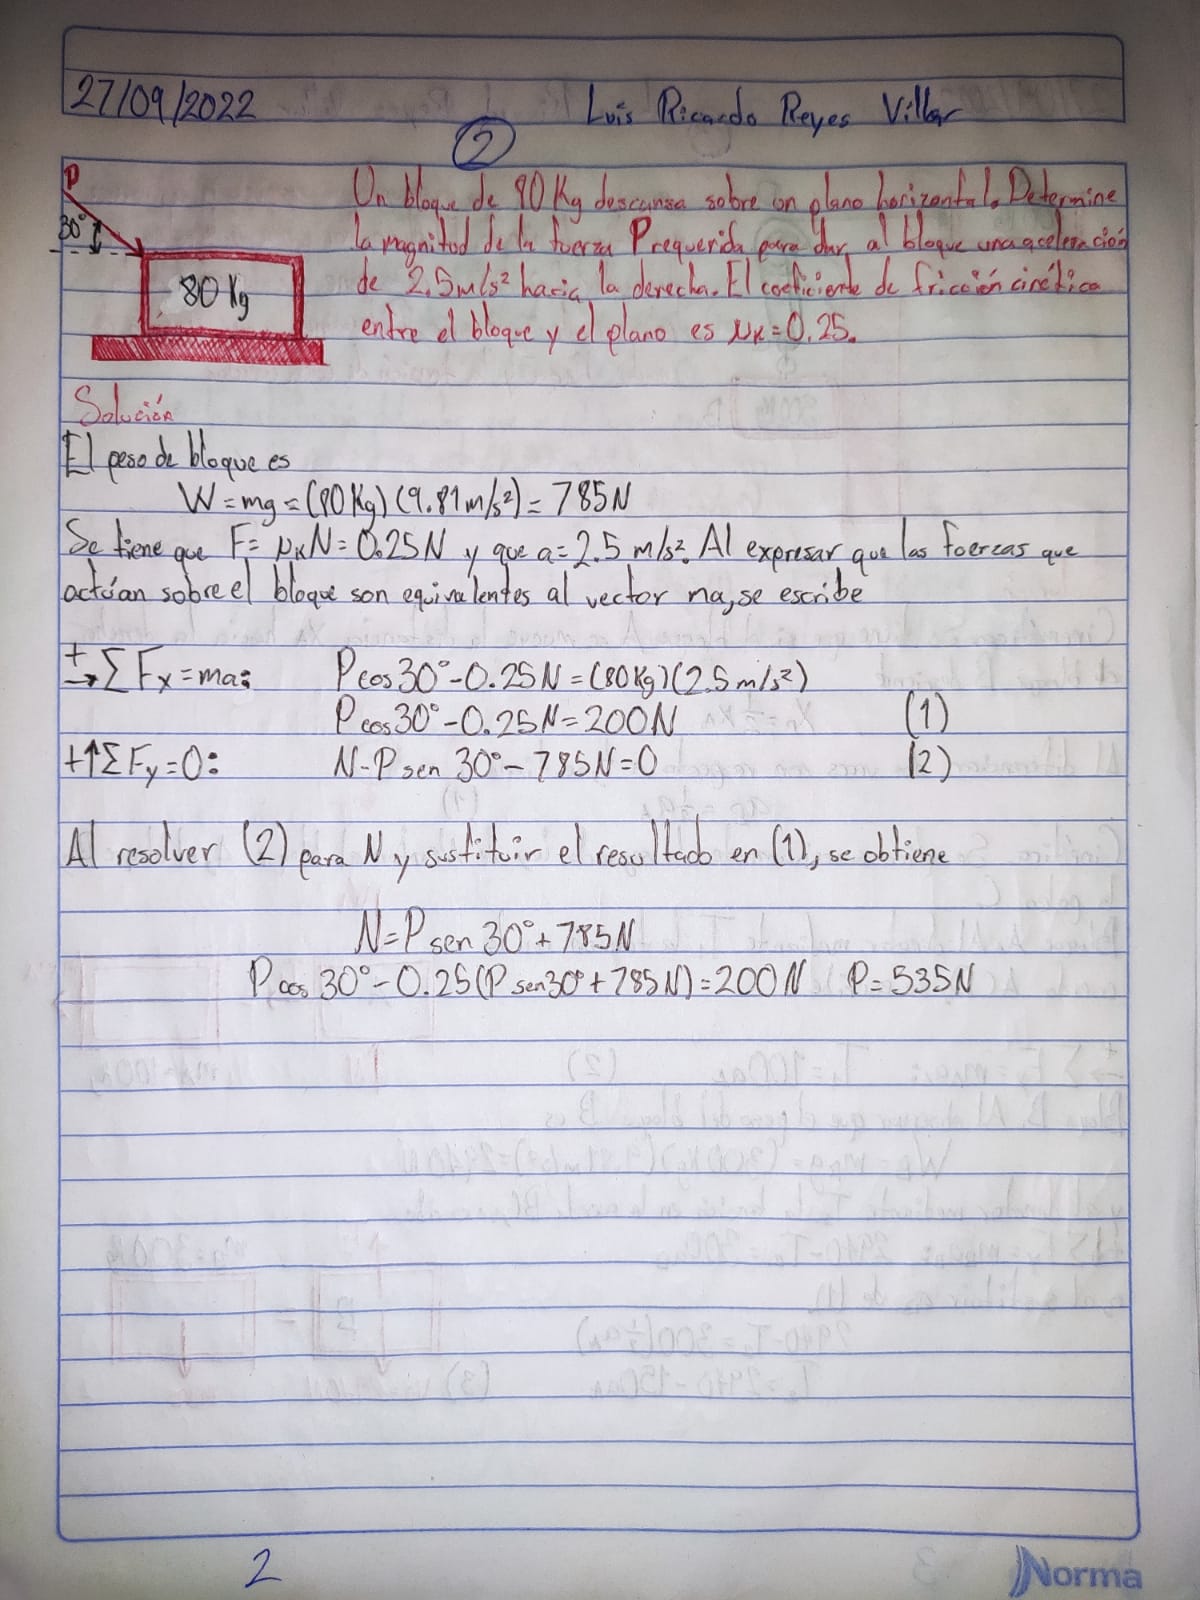 27/09/2022 Luis Ricardo Reyes Villar
2
P
30°
80 Kg
Un bloque de 80 Kg descansa sobre un plano horizontal. Determine
la magnitud de la fuerza P requerida para dar al bloque una aceleración
de 2.5 m/s² hacia la derecha. El coeficiente de fricción cinética
entre el bloque y el plano es μK=0.25.
Solución
El peso de bloque es
W=mg=(80Kg)(9.81m/s²)=785N
Se tiene que F= μKN=0.25N y que a=2.5 m/s². Al expresar que las fuerzas que
actúan sobre el bloque son equivalentes al vector ma, se escribe
+→ΣFx=ma: Pcos30°-0.25N=(80Kg)(2.5m/s²)
Pcos30°-0.25N=200N (1)
+↑ΣFy=0: N-Psen 30°-785N=0 (2)
Al resolver (2) para N y sustituir el resultado en (1), se obtiene
N=Psen 30°+785N
Pcos 30°-0.25(Psen30°+785N)=200N P=535N
2
Norma